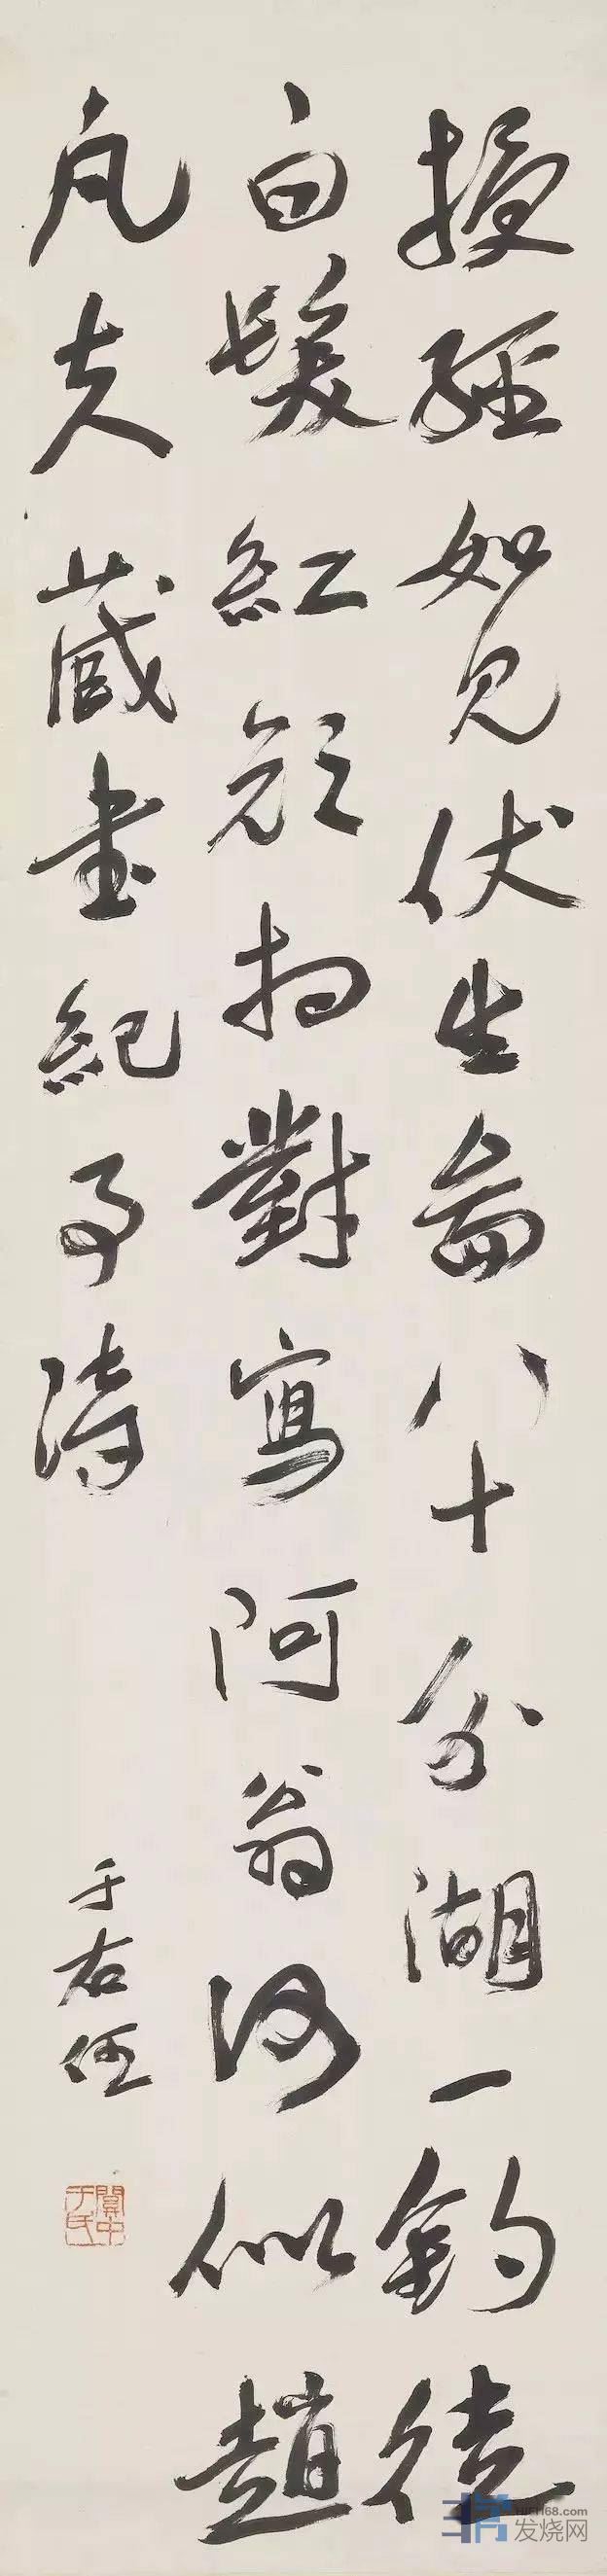 授經如見伏生圖八十分湖一釣徒
白髮紅顏相對寫阿翁何似趙
凡夫藏書紀事詩
于右任
關中于氏
HIFI168.com
发烧网